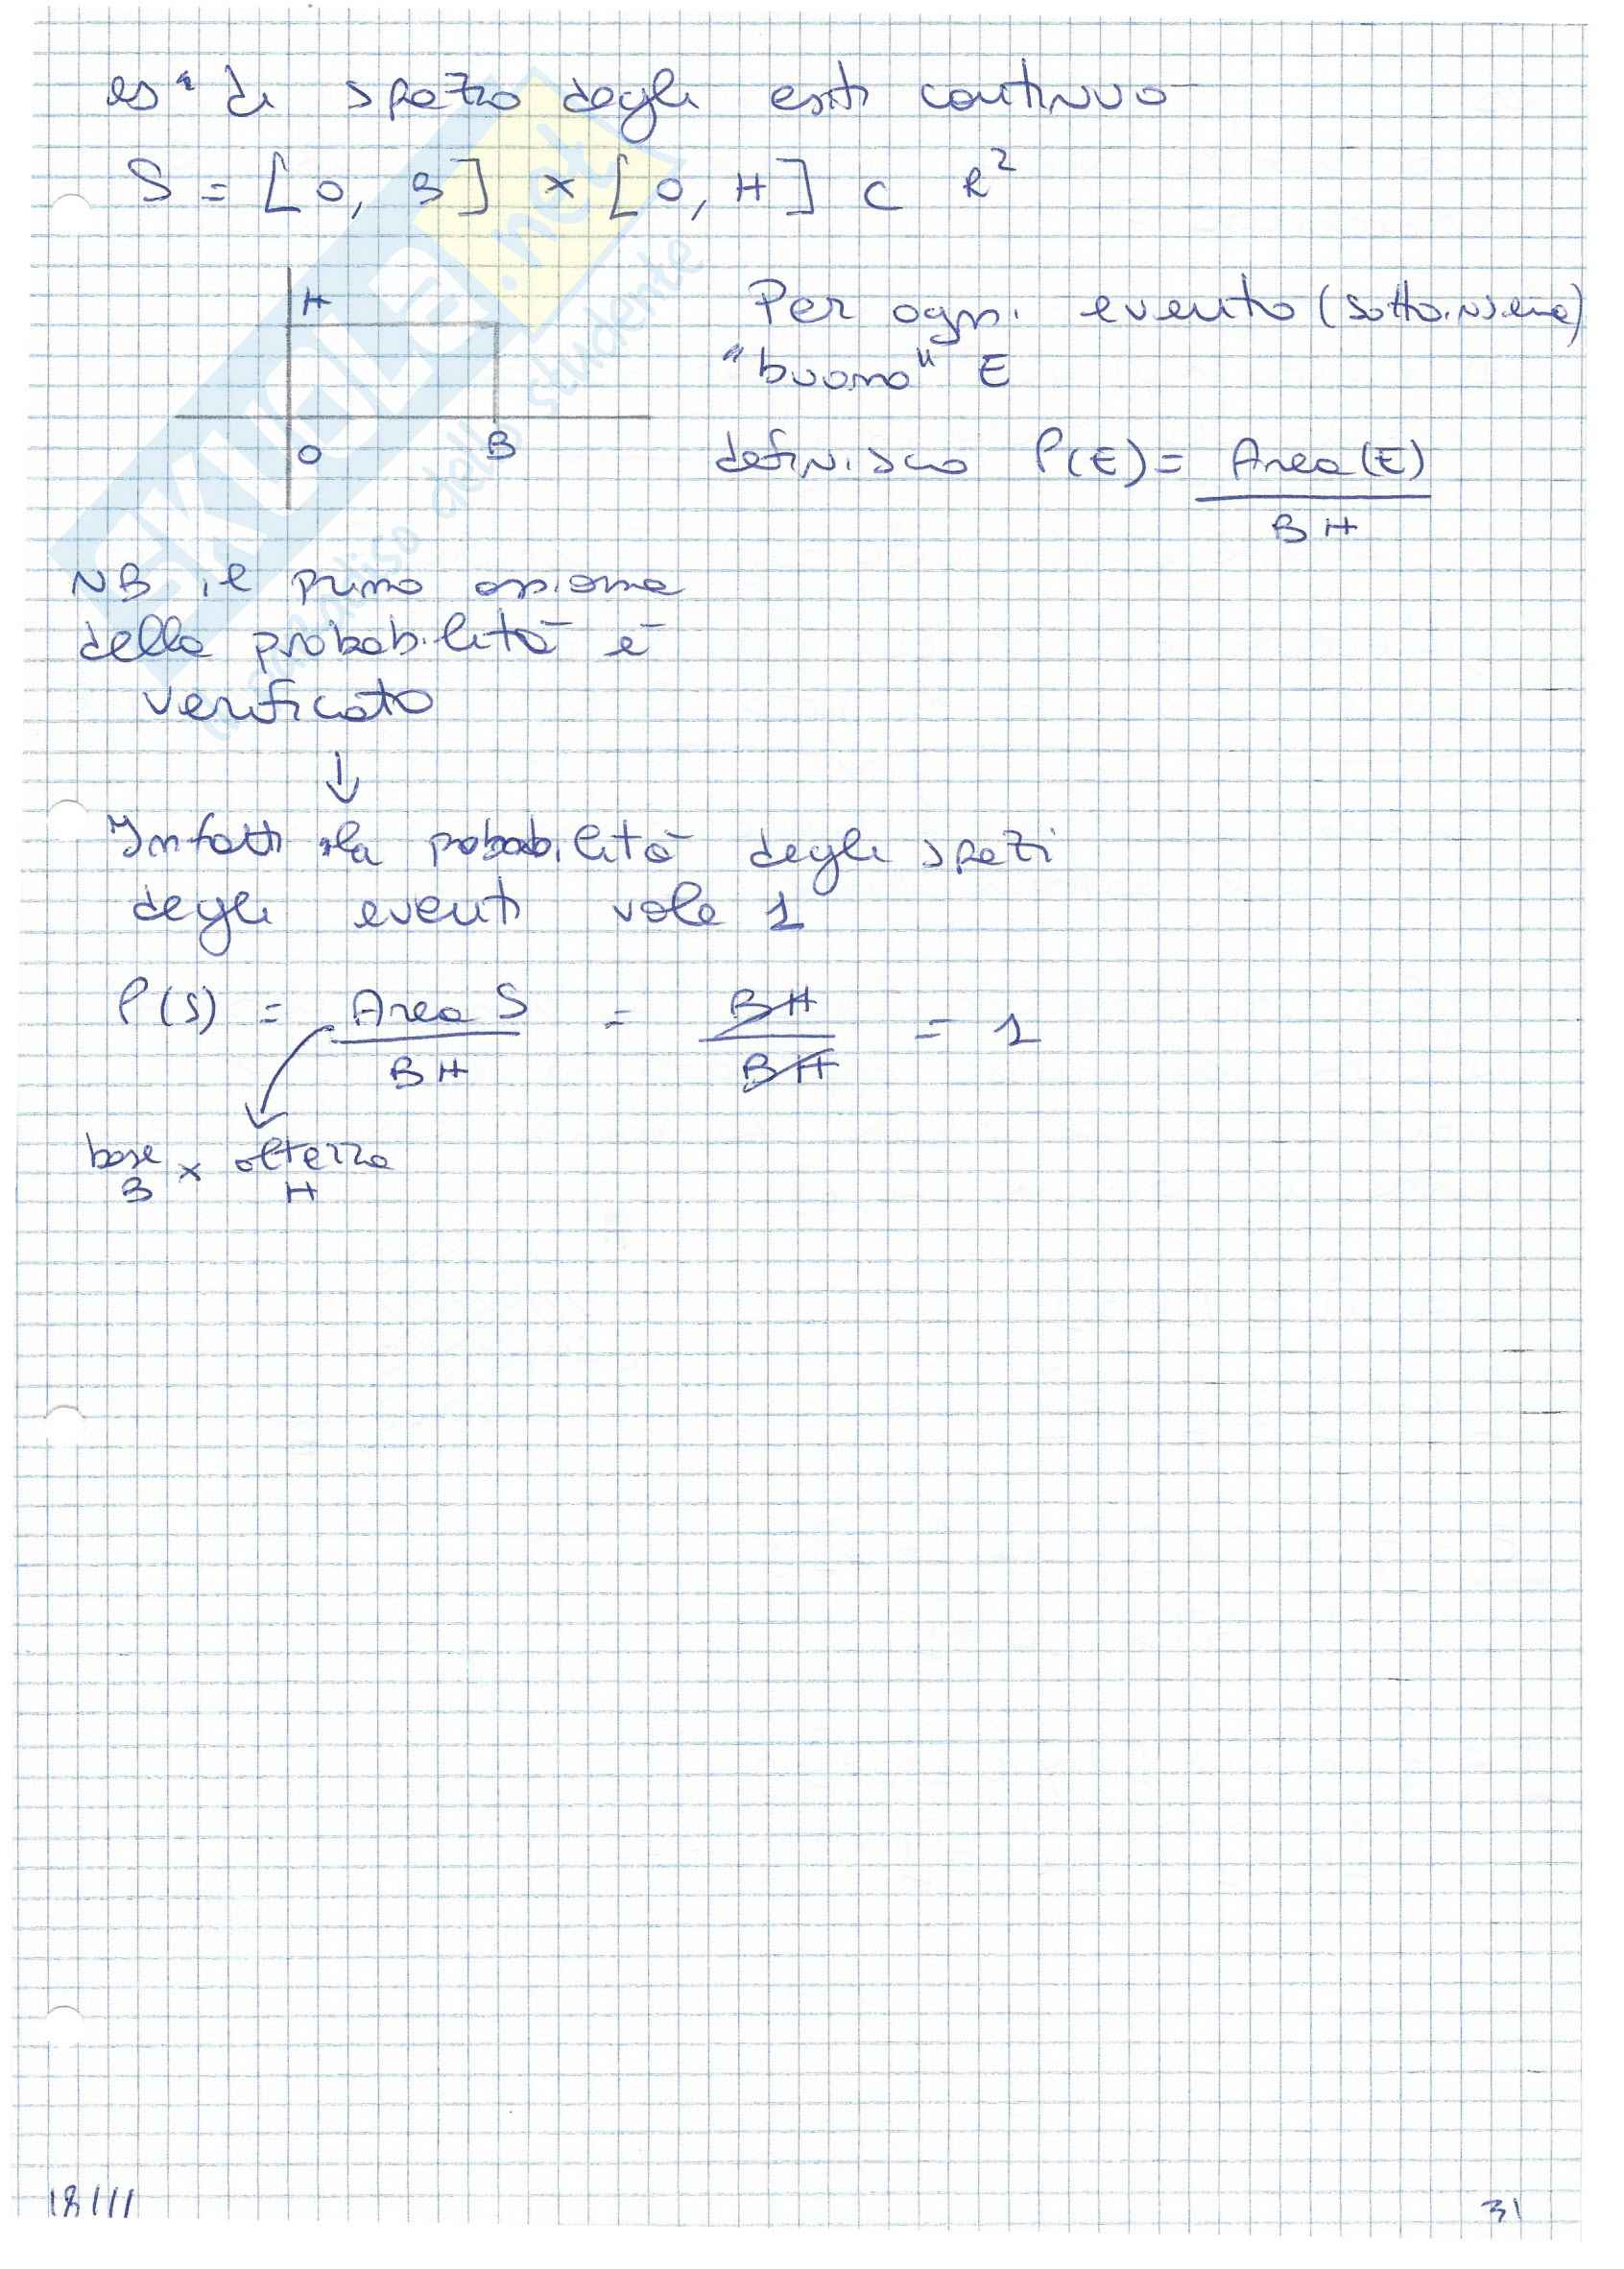 es. di spazio degli esiti continuo
S = [0, B] × [0, H] ⊂ R²
H
O
B
Per ogni evento (sottoinsieme)
"buono" E
definisco P(E) = Area(E) / BH
NB il primo assioma
della probabilità è
verificato
↓
Infatti la probabilità degli spazi
degli eventi vale 1
P(S) = Area S / BH = BH / BH = 1
base × altezza
B H
18/11/
31
SKUOLA.net
paradiso dello studente